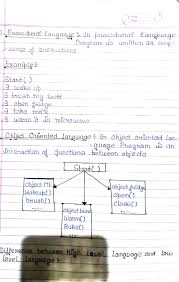 Procedural Language :- In procedural language
Program is written as seq-
uence of instructions.
Example :-
Start( )
I wake up
I brush my teeth
I open fridge
I take milk
I warm it in microwave
Object Oriented Language :- In Object oriented lan-
guage Program is an
interaction of functions between objects
Start( )
object M1
Wakeup( )
Brush( )
object fridge
Open( )
Close( )
object
Warm( )
Difference between High Level Language and low
level language :-